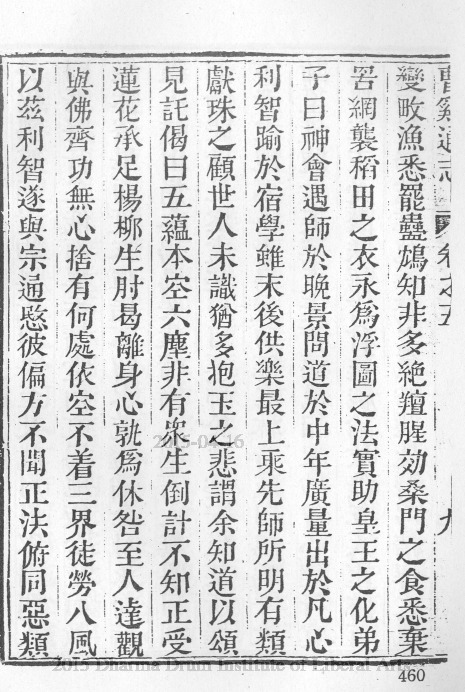 曹溪通志 卷之五 九
變畋漁悉罷蠱鴆知非多絶羶腥効桑門之食悉棄
罟網襲稻田之衣永爲浮圖之法實助皇王之化弟
子曰神會遇師於晚景問道於中年廣量出於凡心
利智踰於宿學雖末後供樂最上乘先師所明有類
獻珠之顧世人未識猶多抱玉之悲謂余知道以頌
見託偈曰五蘊本空六塵非有衆生倒計不知正受
蓮花承足楊柳生肘曷離身心孰爲休咎至人達觀
與佛齊功無心捨有何處依空不着三界徒勞八風
以茲利智遂與宗通愍彼偏方不聞正法俯同惡類
2015-04-16
2015 Dharma Drum Institute of Liberal Arts
460